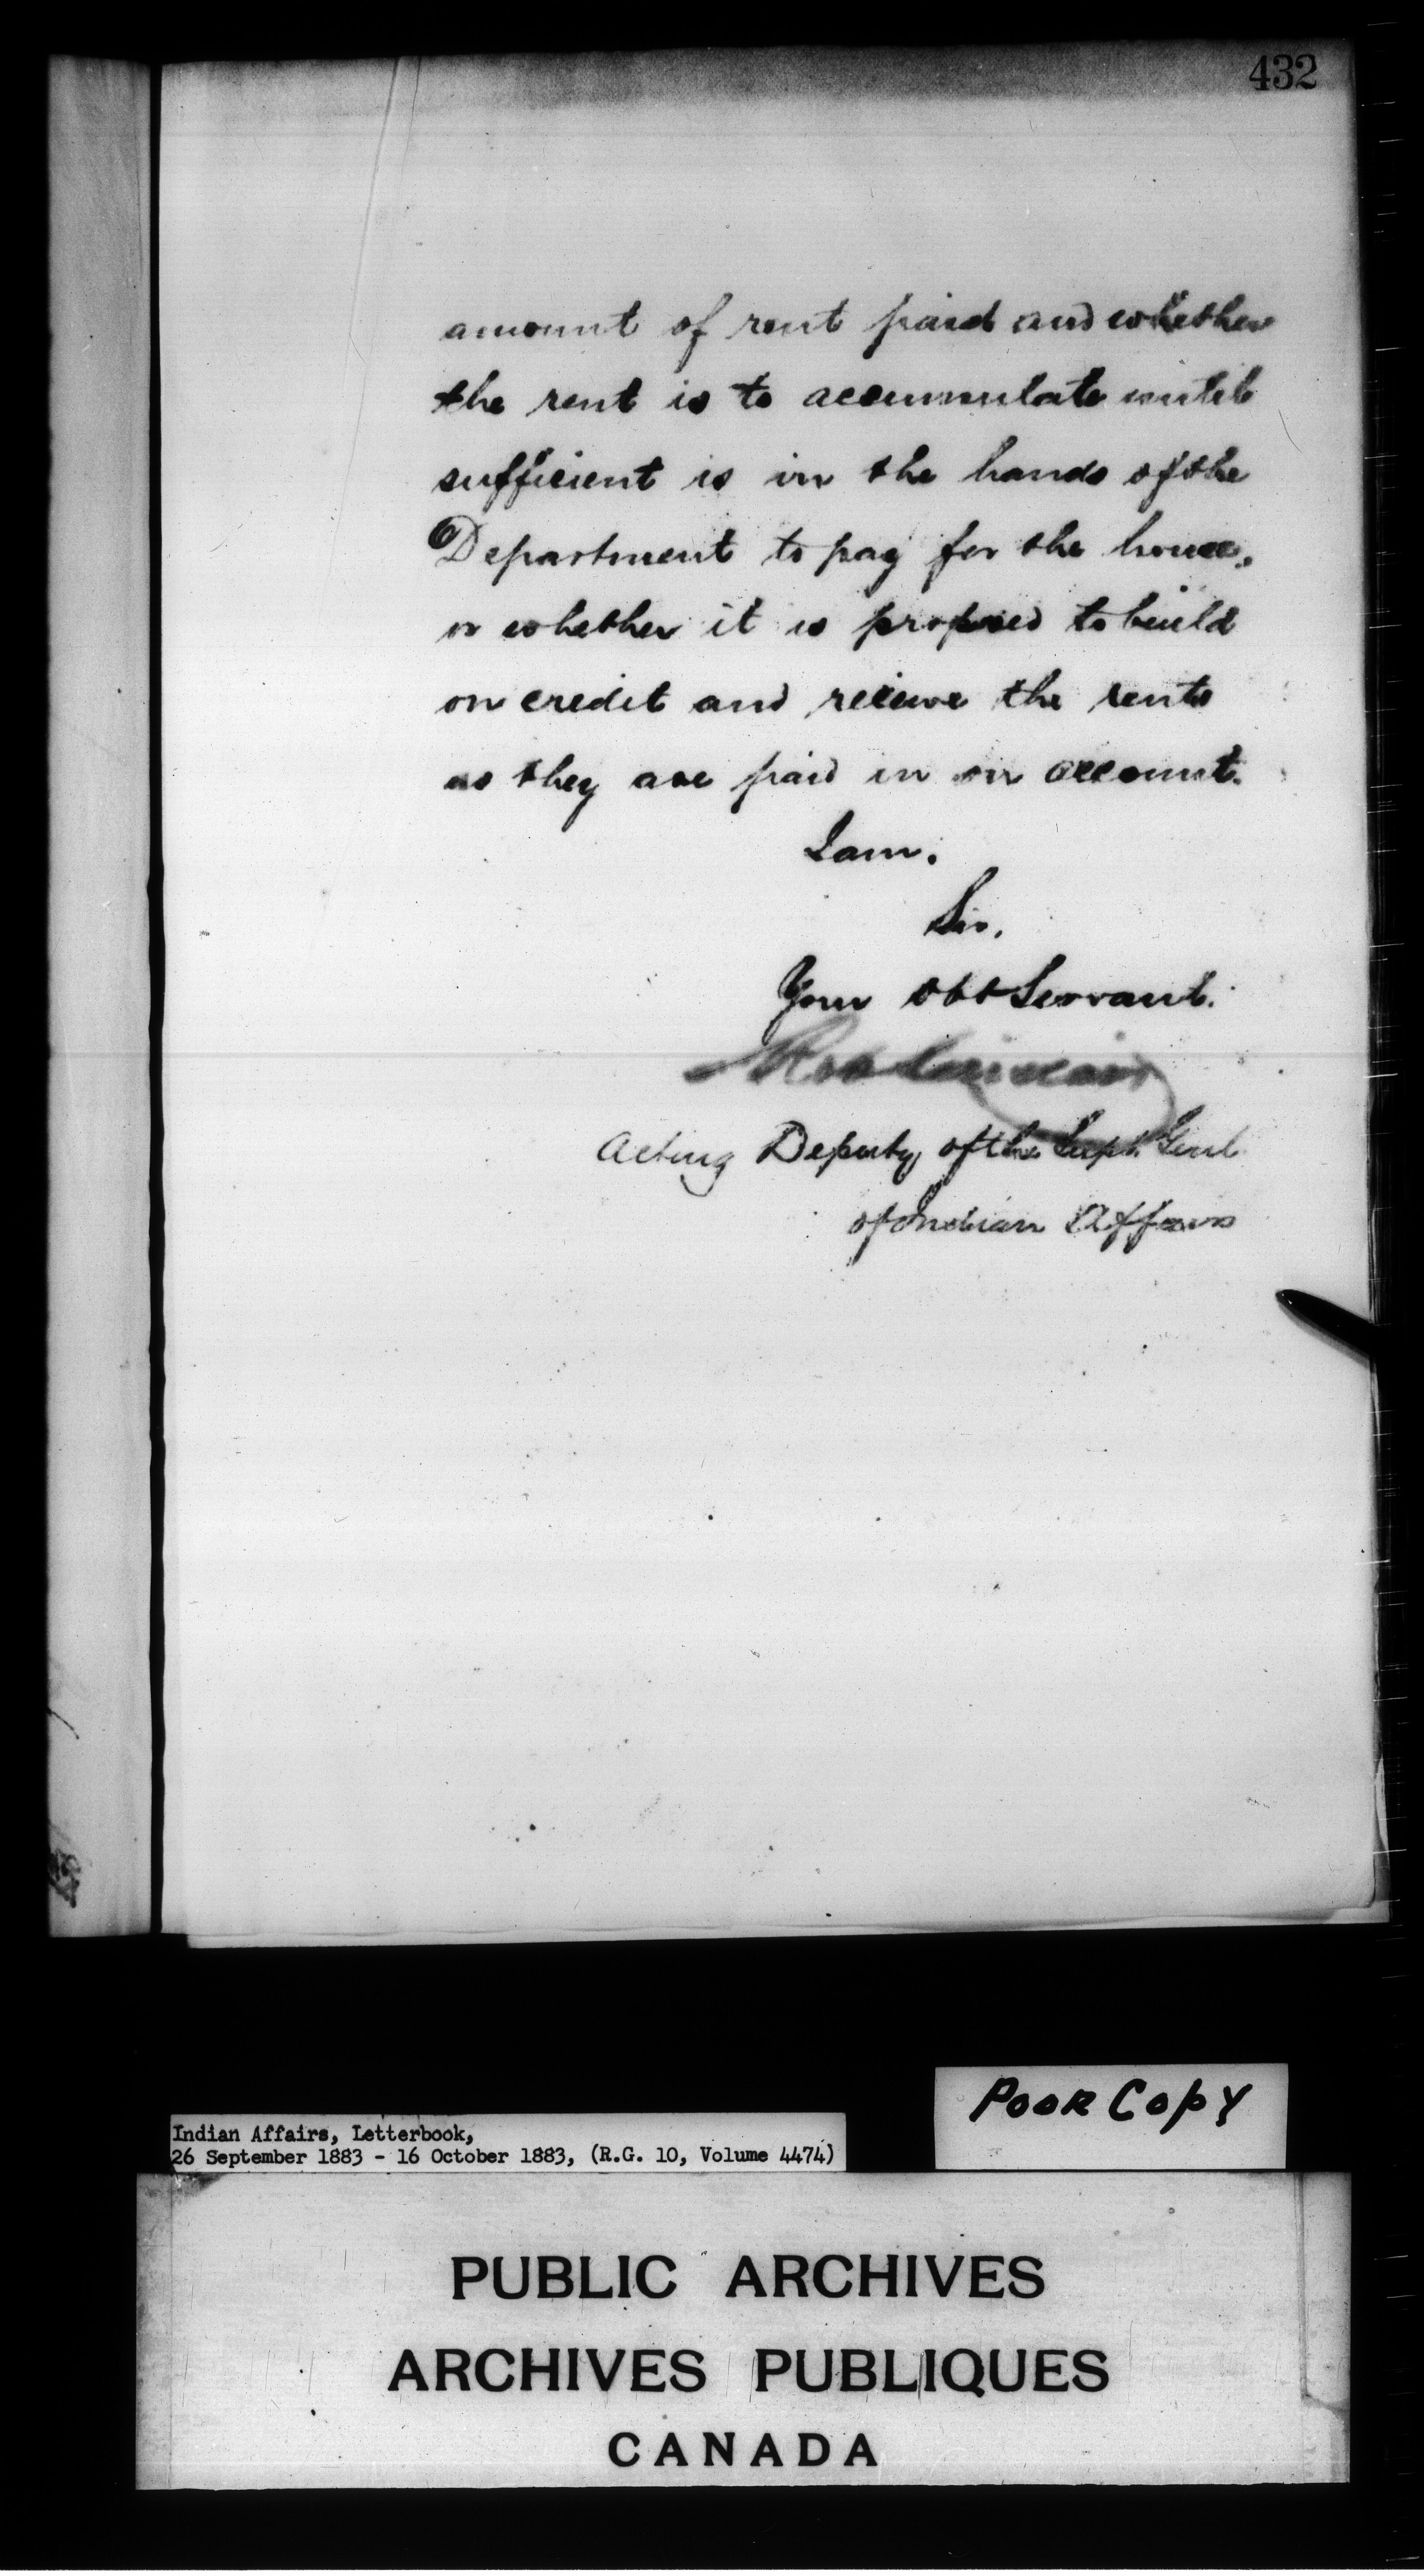 432
amount of rent paid and whether
the rent is to accumulate until
sufficient is in the hands of the
Department to pay for the house,
or whether it is proposed to build
on credit and receive the rents
as they are paid in on account.
I am.
Sir.
Your Obt Servant.
Rob Sinclair
Acting Deputy of the Supt Genl
of Indian Affairs
POOR COPY
Indian Affairs, Letterbook,
26 September 1883 - 16 October 1883, (R.G. 10, Volume 4474)
PUBLIC ARCHIVES
ARCHIVES PUBLIQUES
CANADA